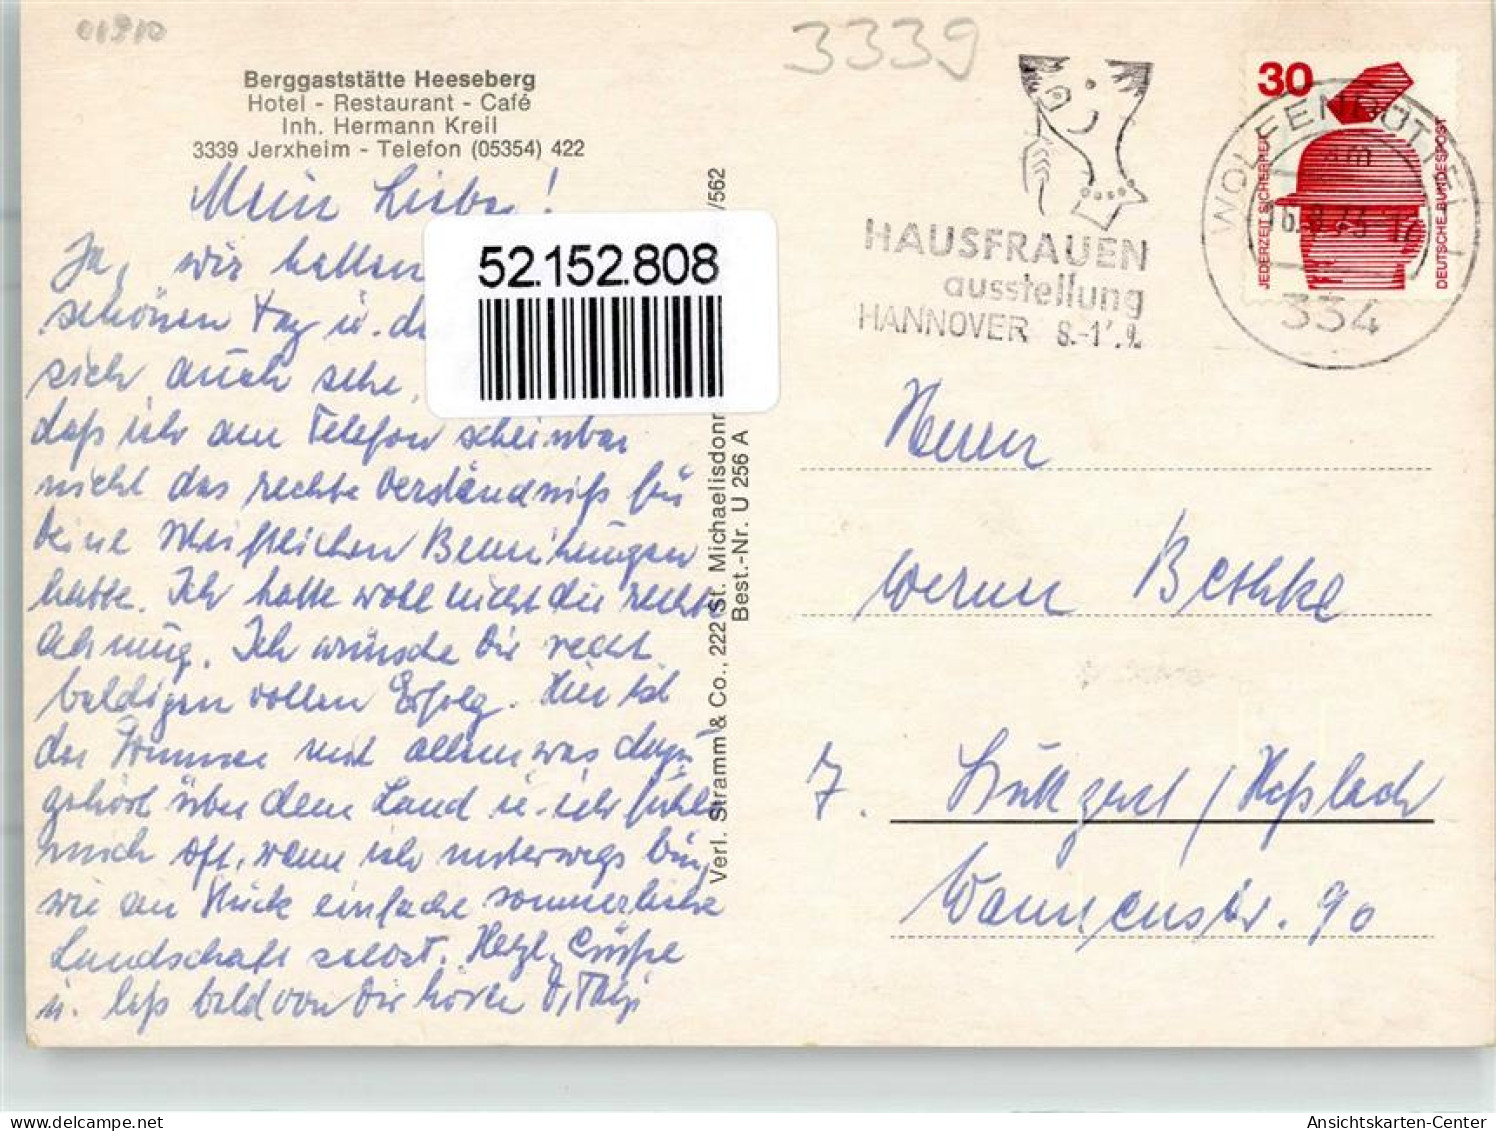 01910
3339
Berggaststätte Heeseberg
Hotel - Restaurant - Café
Inh. Hermann Kreil
3339 Jerxheim - Telefon (05354) 422
Mein Lieber!
Ja, wir hatten
schönen Tag u.
sich auch sehr,
daß ich am Telefon scheinbar
nicht das rechte Verständniß für
Deine schriftlichen Bemühungen
hatte. Ich hatte wohl nicht die rechte
Ahnung. Ich wünsche Dir recht
baldigen vollen Erfolg. Hier ist
der Sommer mit allem was dazu
gehört über dem Land u. ich fühle
mich oft, wenn ich unterwegs bin,
wie ein Stück einfache sommerliche
Landschaft selbst. Herzl. Grüße
u. laß bald von Dir hören
52.152.808
Verl. Stramm & Co., 222 St. Michaelisdonn
/562
Best.-Nr. U 256 A
HAUSFRAUEN
ausstellung
HANNOVER 8.-1
30
JEDERZEIT SICHERHEIT
DEUTSCHE BUNDESPOST
WOLFENBÜTTEL 1
334
Herrn
Werner Bethke
7. Stuttgart / Heslach
Wannenstr. 90
Ansichtskarten-Center